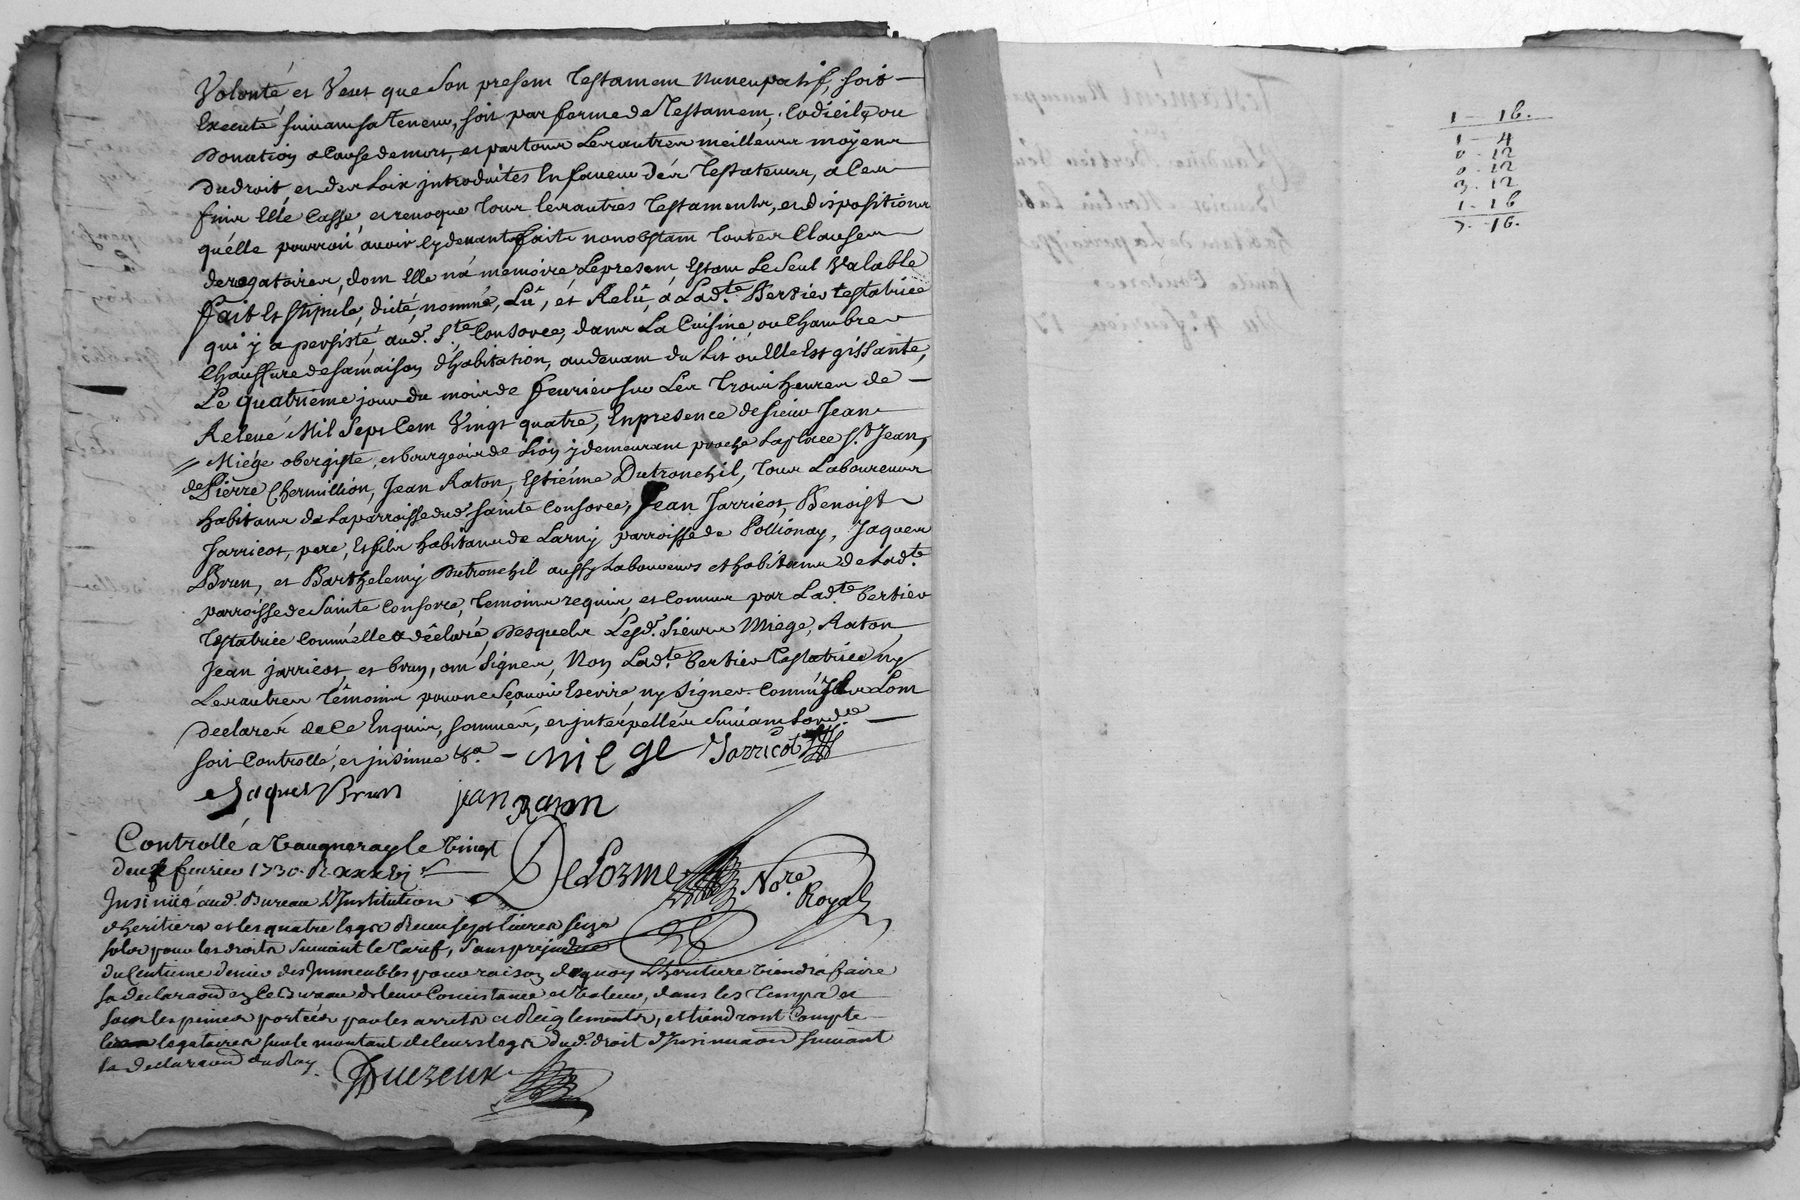 Volonté et Veut que Son present Testament Nuncupatif, soit
Executé suivant sa Teneur, soit par forme de Testament, Codicile ou
Donation a Cause de mort, et par tous Les autres meilleurs moyens
du droit et des Loix introduites En faveur dés Testateurs, a Ces
fins Elle Casse et revoque Tous lés autres Testaments, et dispositions
qu'elle pourroit avoir Cy devant faits nonobstant Toutes Clauses
derogatoires, dont Elle n'á mémoire Le present Estant Le Seul Valable
fait Et Stipulé, dicté, nommé, Lû, et Relû, á Lad.te Bertier testatrice
qui y a persisté aud.t S.te Consorce, dans La Cuisine ou Chambre
Chauffure de sa maison d'habitation, au devant du Lit oú Elle Est gissante,
Le quatriéme jour du mois de fevrier sur Les Trois heures de
Relevé Mil Sept Cent Vingt quatre, En presence de sieur Jean
Miége obergiste, et bourgeois de Lion y demeurant proche La place S.t Jean,
de Pierre Chermillion, Jean Raton, Estiénne Dutronchil, Tous Laboureurs
habitans de La parroisse dud.t Sainte Consorce, Jean Jarricot, Benoist
Jarricot, pere, Et fils habitans de Larny parroisse de Pollionay, Jaques
Brun, et Barthelemy Dutronchil aussy Laboureurs et habitans de Lad.te
parroisse de Sainte Consorce, Témoins requis, et Connus par Lad.te Bertier
Testatrice Comm'elle a déclaré, Desquels Lesd.ts Sieurs Miége, Raton,
Jean jarricot, et brun, ont Signer, Non Lad.te Bertier Testatrice ny
Les autres Témoins pour ne Sçavoir Escrire, ny Signer. Comm'Ils L'ont
declarér de Ce Enquis, sommér, et intérpellér Suivant L'ord.ce
soit Controllé, et insinué &.a Miege Jarricot
Jaques Brun jean Raton
Controllé a Vaugneray le Vingt
deux fevrier 1730. R. xxxvi s
DeLorme No.re Royal
Insinué aud. Bureau L'Institution
d'heritiers et les quatre legs Receu sept livres seize
sols pour les droits Suivant le Tarif, Sans prejudice
du Centieme denier des Immeubles pour raison de quoy L'heritiere viendra faire
sa declaraon en Ce Bureau de leur Consistance et Valeur, dans les Temps et
sous les peines portées par les arrets et Reiglements, et tiendront Compte
les legataires sur le montant de leurs legs dud. droit d'Insinuaon suivant
la declaraon du Roy.
Duezeux
1 - 16.
1 - 4
0 - 12
0 - 12
3 - 12
1 - 16
7 - 16.